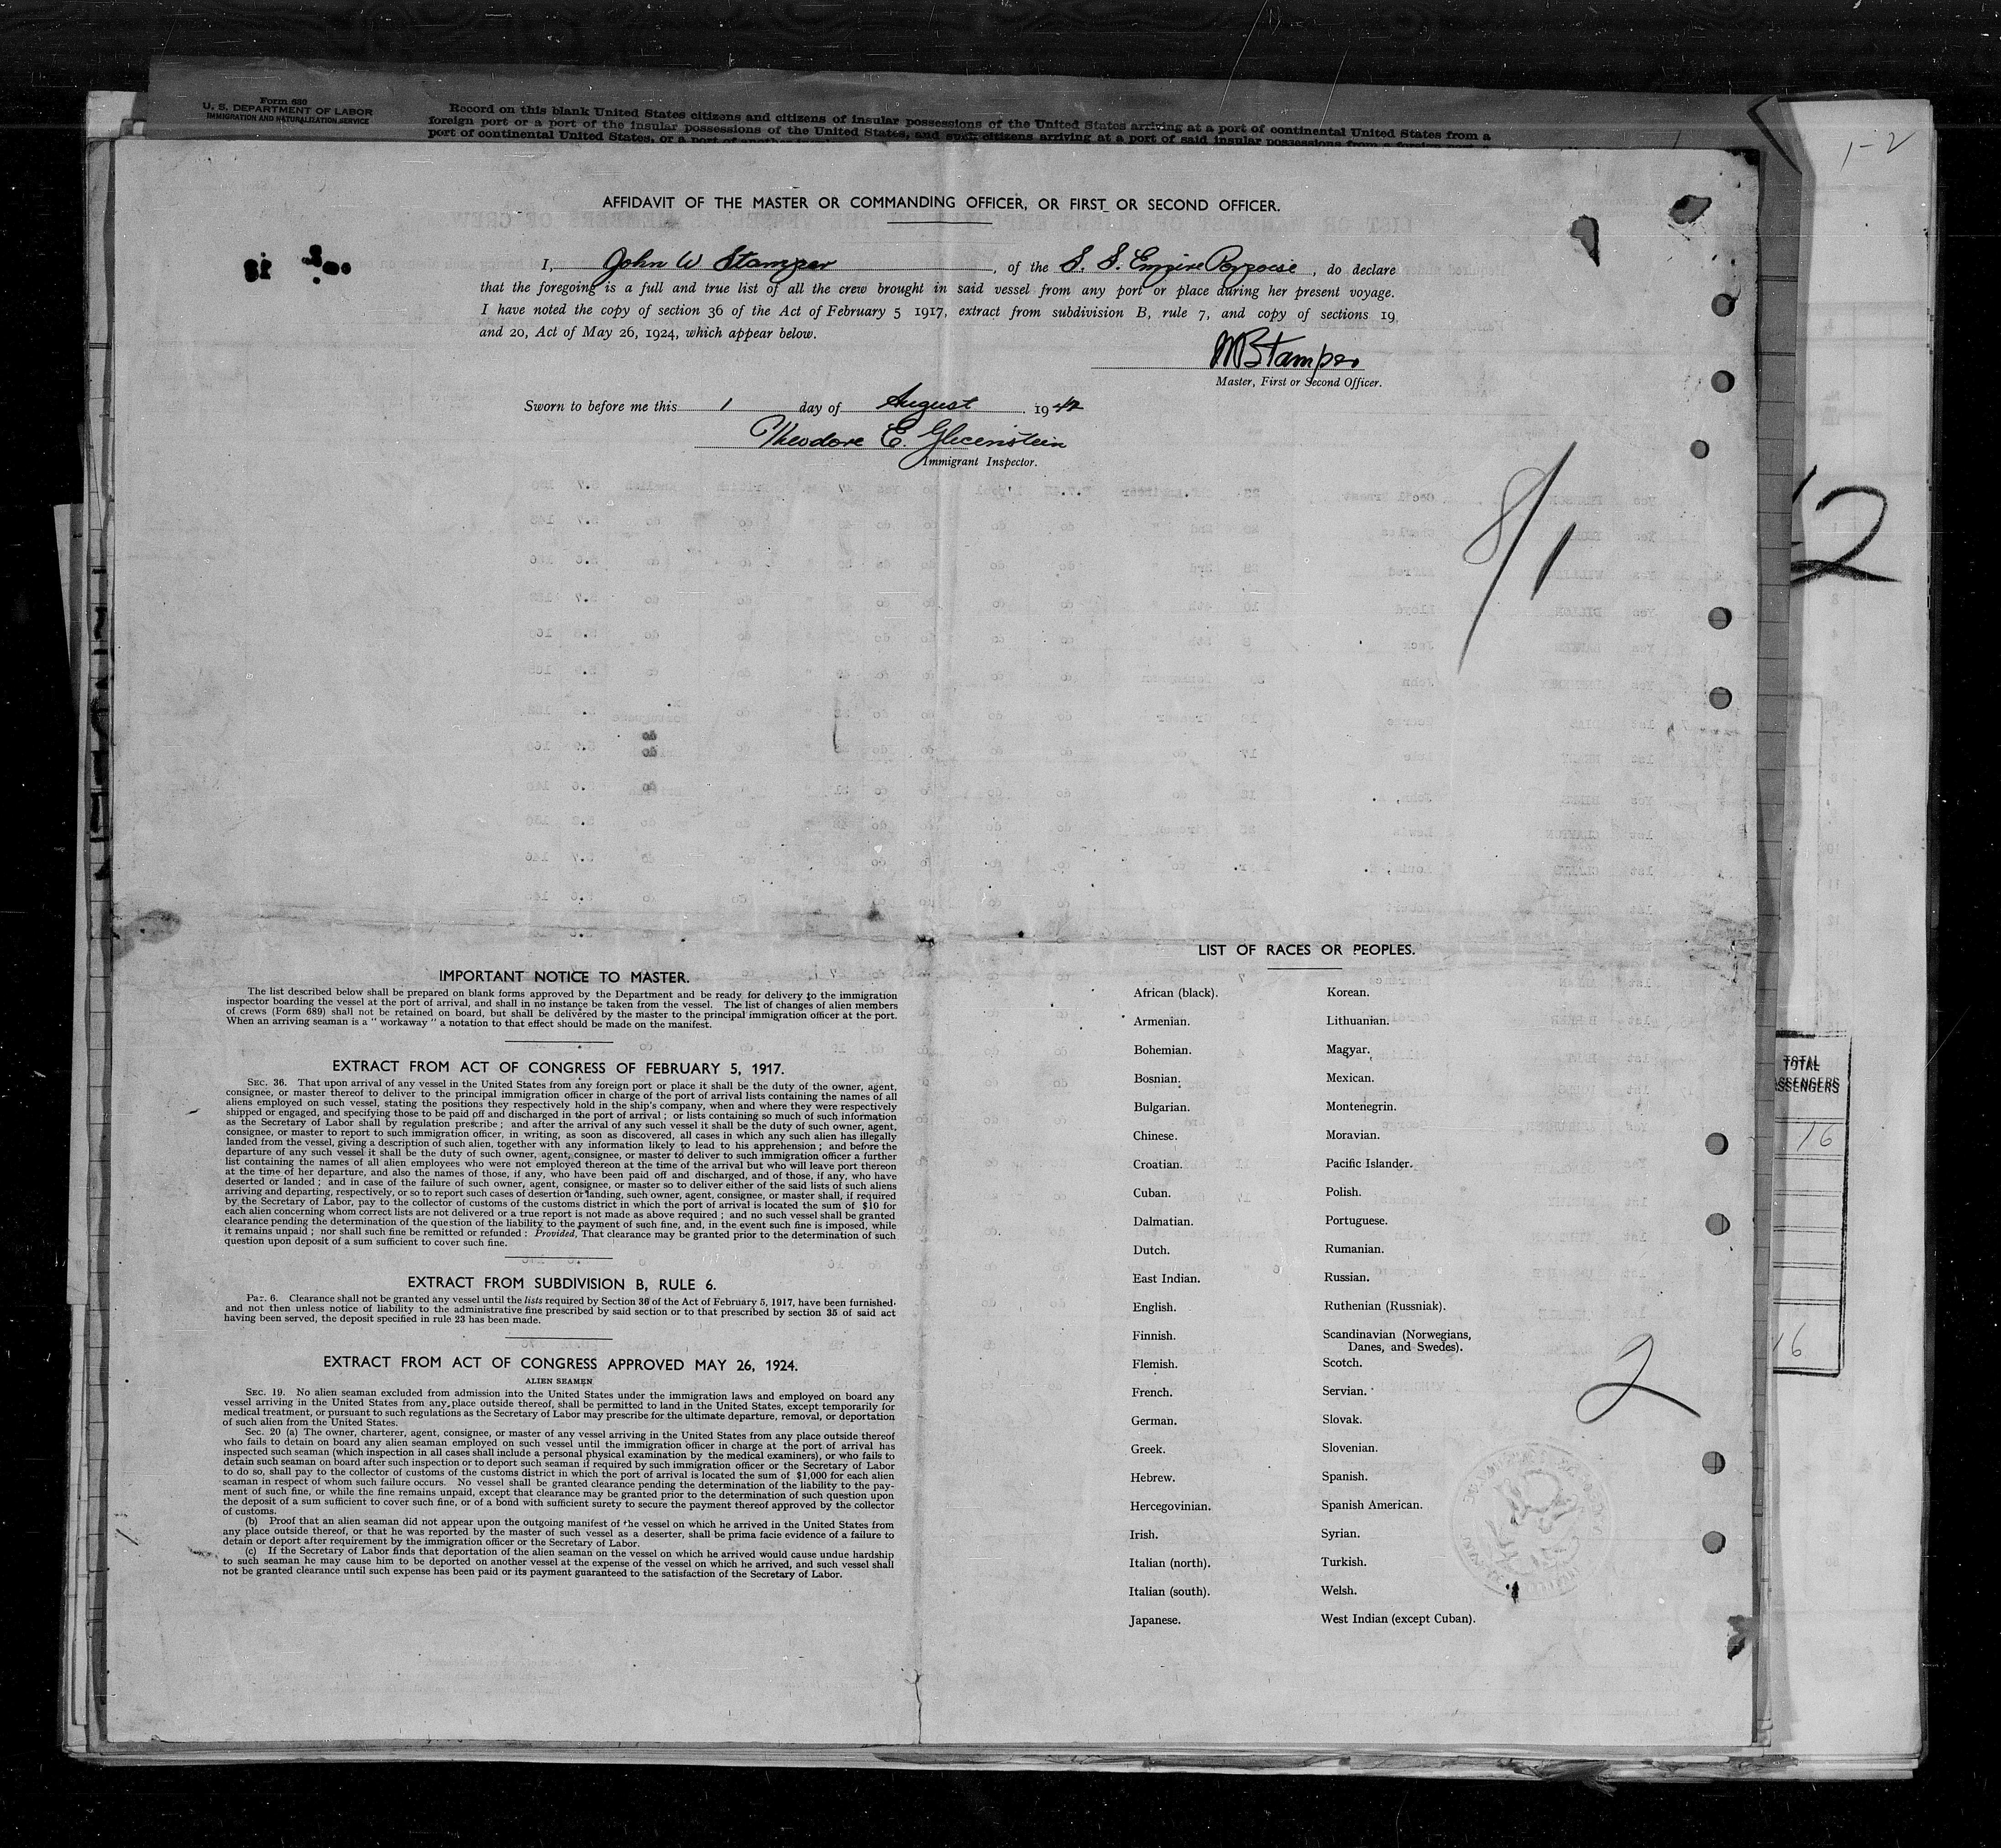 Form 680
U. S. DEPARTMENT OF LABOR
IMMIGRATION AND NATURALIZATION SERVICE
Record on this blank United States citizens and citizens of insular possessions of the United States arriving at a port of continental United States from a
foreign port or a port of the insular possessions of the United States, and such citizens arriving at a port of said insular possessions from a foreign port
port of continental United States, or a port of another
1-2
AFFIDAVIT OF THE MASTER OR COMMANDING OFFICER, OR FIRST OR SECOND OFFICER.
I, John W Stamper, of the S. S. Empire Porpoise, do declare
that the foregoing is a full and true list of all the crew brought in said vessel from any port or place during her present voyage.
I have noted the copy of section 36 of the Act of February 5 1917, extract from subdivision B, rule 7, and copy of sections 19
and 20, Act of May 26, 1924, which appear below.
Stamper
Master, First or Second Officer.
Sworn to before me this 1 day of August 1942
Theodore E. Glicenstein
Immigrant Inspector.
8/1
2
IMPORTANT NOTICE TO MASTER.
The list described below shall be prepared on blank forms approved by the Department and be ready for delivery to the immigration
inspector boarding the vessel at the port of arrival, and shall in no instance be taken from the vessel. The list of changes of alien members
of crews (Form 689) shall not be retained on board, but shall be delivered by the master to the principal immigration officer at the port.
When an arriving seaman is a " workaway " a notation to that effect should be made on the manifest.
EXTRACT FROM ACT OF CONGRESS OF FEBRUARY 5, 1917.
SEC. 36. That upon arrival of any vessel in the United States from any foreign port or place it shall be the duty of the owner, agent,
consignee, or master thereof to deliver to the principal immigration officer in charge of the port of arrival lists containing the names of all
aliens employed on such vessel, stating the positions they respectively hold in the ship's company, when and where they were respectively
shipped or engaged, and specifying those to be paid off and discharged in the port of arrival ; or lists containing so much of such information
as the Secretary of Labor shall by regulation prescribe ; and after the arrival of any such vessel it shall be the duty of such owner, agent,
consignee, or master to report to such immigration officer, in writing, as soon as discovered, all cases in which any such alien has illegally
landed from the vessel, giving a description of such alien, together with any information likely to lead to his apprehension ; and before the
departure of any such vessel it shall be the duty of such owner, agent, consignee, or master to deliver to such immigration officer a further
list containing the names of all alien employees who were not employed thereon at the time of the arrival but who will leave port thereon
at the time of her departure, and also the names of those, if any, who have been paid off and discharged, and of those, if any, who have
deserted or landed ; and in case of the failure of such owner, agent, consignee, or master so to deliver either of the said lists of such aliens
arriving and departing, respectively, or so to report such cases of desertion or landing, such owner, agent, consignee, or master shall, if required
by the Secretary of Labor, pay to the collector of customs of the customs district in which the port of arrival is located the sum of $10 for
each alien concerning whom correct lists are not delivered or a true report is not made as above required ; and no such vessel shall be granted
clearance pending the determination of the question of the liability to the payment of such fine, and, in the event such fine is imposed, while
it remains unpaid ; nor shall such fine be remitted or refunded : Provided, That clearance may be granted prior to the determination of such
question upon deposit of a sum sufficient to cover such fine.
EXTRACT FROM SUBDIVISION B, RULE 6.
Par. 6. Clearance shall not be granted any vessel until the lists required by Section 36 of the Act of February 5, 1917, have been furnished,
and not then unless notice of liability to the administrative fine prescribed by said section or to that prescribed by section 35 of said act
having been served, the deposit specified in rule 23 has been made.
EXTRACT FROM ACT OF CONGRESS APPROVED MAY 26, 1924.
ALIEN SEAMEN
SEC. 19. No alien seaman excluded from admission into the United States under the immigration laws and employed on board any
vessel arriving in the United States from any place outside thereof, shall be permitted to land in the United States, except temporarily for
medical treatment, or pursuant to such regulations as the Secretary of Labor may prescribe for the ultimate departure, removal, or deportation
of such alien from the United States.
Sec. 20 (a) The owner, charterer, agent, consignee, or master of any vessel arriving in the United States from any place outside thereof
who fails to detain on board any alien seaman employed on such vessel until the immigration officer in charge at the port of arrival has
inspected such seaman (which inspection in all cases shall include a personal physical examination by the medical examiners), or who fails to
detain such seaman on board after such inspection or to deport such seaman if required by such immigration officer or the Secretary of Labor
to do so, shall pay to the collector of customs of the customs district in which the port of arrival is located the sum of $1,000 for each alien
seaman in respect of whom such failure occurs. No vessel shall be granted clearance pending the determination of the liability to the pay-
ment of such fine, or while the fine remains unpaid, except that clearance may be granted prior to the determination of such question upon
the deposit of a sum sufficient to cover such fine, or of a bond with sufficient surety to secure the payment thereof approved by the collector
of customs.
(b) Proof that an alien seaman did not appear upon the outgoing manifest of the vessel on which he arrived in the United States from
any place outside thereof, or that he was reported by the master of such vessel as a deserter, shall be prima facie evidence of a failure to
detain or deport after requirement by the immigration officer or the Secretary of Labor.
(c) If the Secretary of Labor finds that deportation of the alien seaman on the vessel on which he arrived would cause undue hardship
to such seaman he may cause him to be deported on another vessel at the expense of the vessel on which he arrived, and such vessel shall
not be granted clearance until such expense has been paid or its payment guaranteed to the satisfaction of the Secretary of Labor.
LIST OF RACES OR PEOPLES.
African (black).
Armenian.
Bohemian.
Bosnian.
Bulgarian.
Chinese.
Croatian.
Cuban.
Dalmatian.
Dutch.
East Indian.
English.
Finnish.
Flemish.
French.
German.
Greek.
Hebrew.
Hercegovinian.
Irish.
Italian (north).
Italian (south).
Japanese.
Korean.
Lithuanian.
Magyar.
Mexican.
Montenegrin.
Moravian.
Pacific Islander.
Polish.
Portuguese.
Rumanian.
Russian.
Ruthenian (Russniak).
Scandinavian (Norwegians,
Danes, and Swedes).
Scotch.
Servian.
Slovak.
Slovenian.
Spanish.
Spanish American.
Syrian.
Turkish.
Welsh.
West Indian (except Cuban).
2
TOTAL
16
16